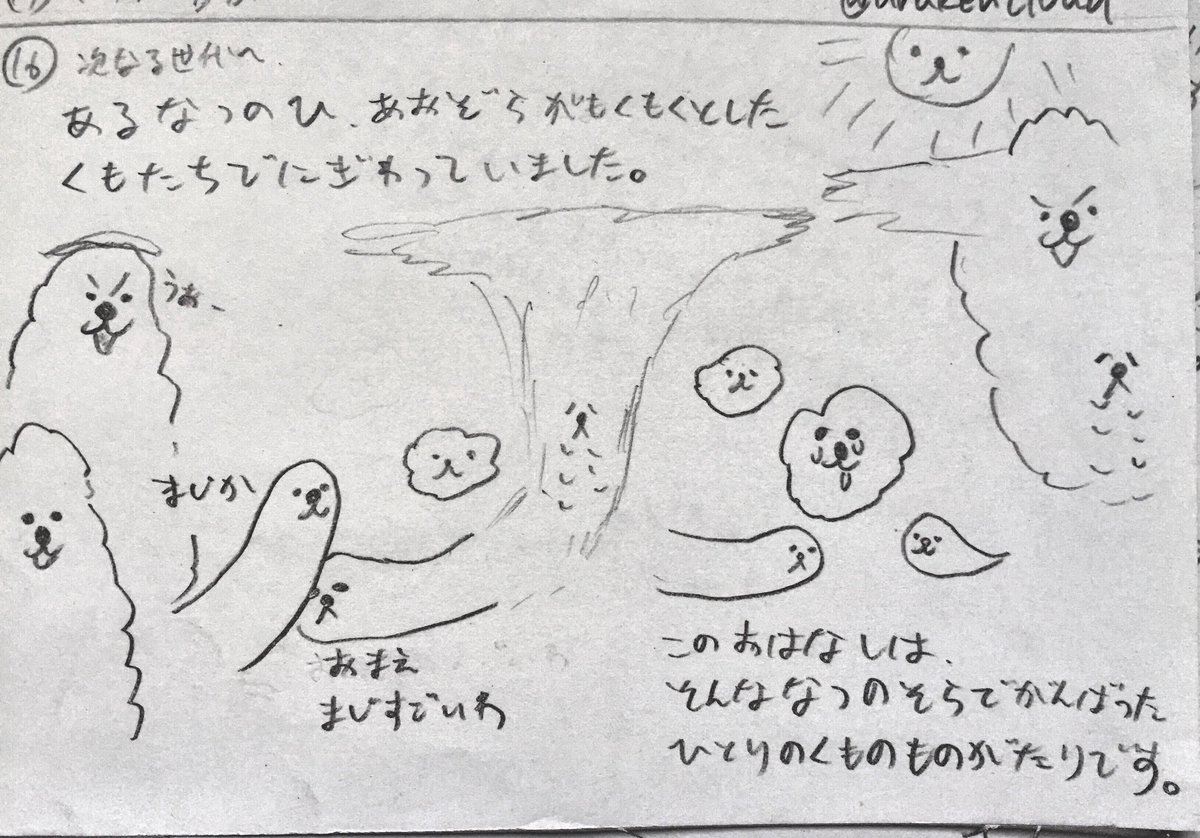 ⑯ 次なる世代へ
あるなつのひ、あおぞらがもくもくとした
くもたちでにぎわっていました。
うぉ、
まじか
おまえ
まじすごいわ
このおはなしは、
そんななつのそらでがんばった
ひとりのくものものがたりです。